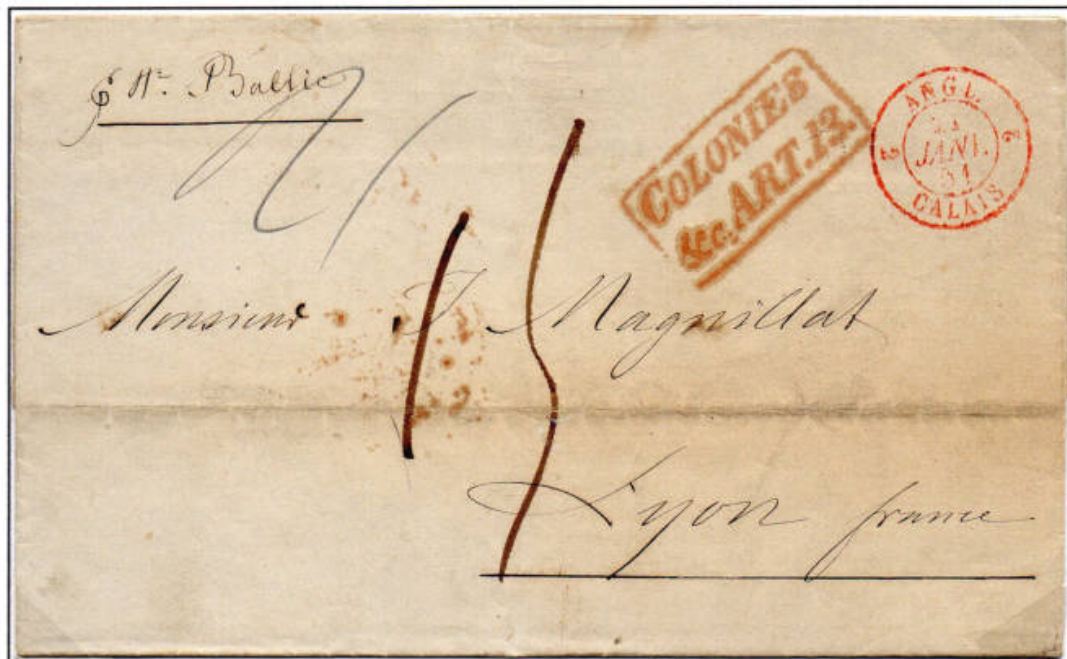 pr Str. Baltic
COLONIES
&c. ART. 13.
ANGL.
2 JANV. 2
51
CALAIS
15
Monsieur J Magnillat
Lyon france